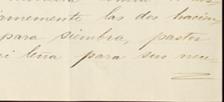 memente las dos hacien
para siembra, pastos
ni leña para sus